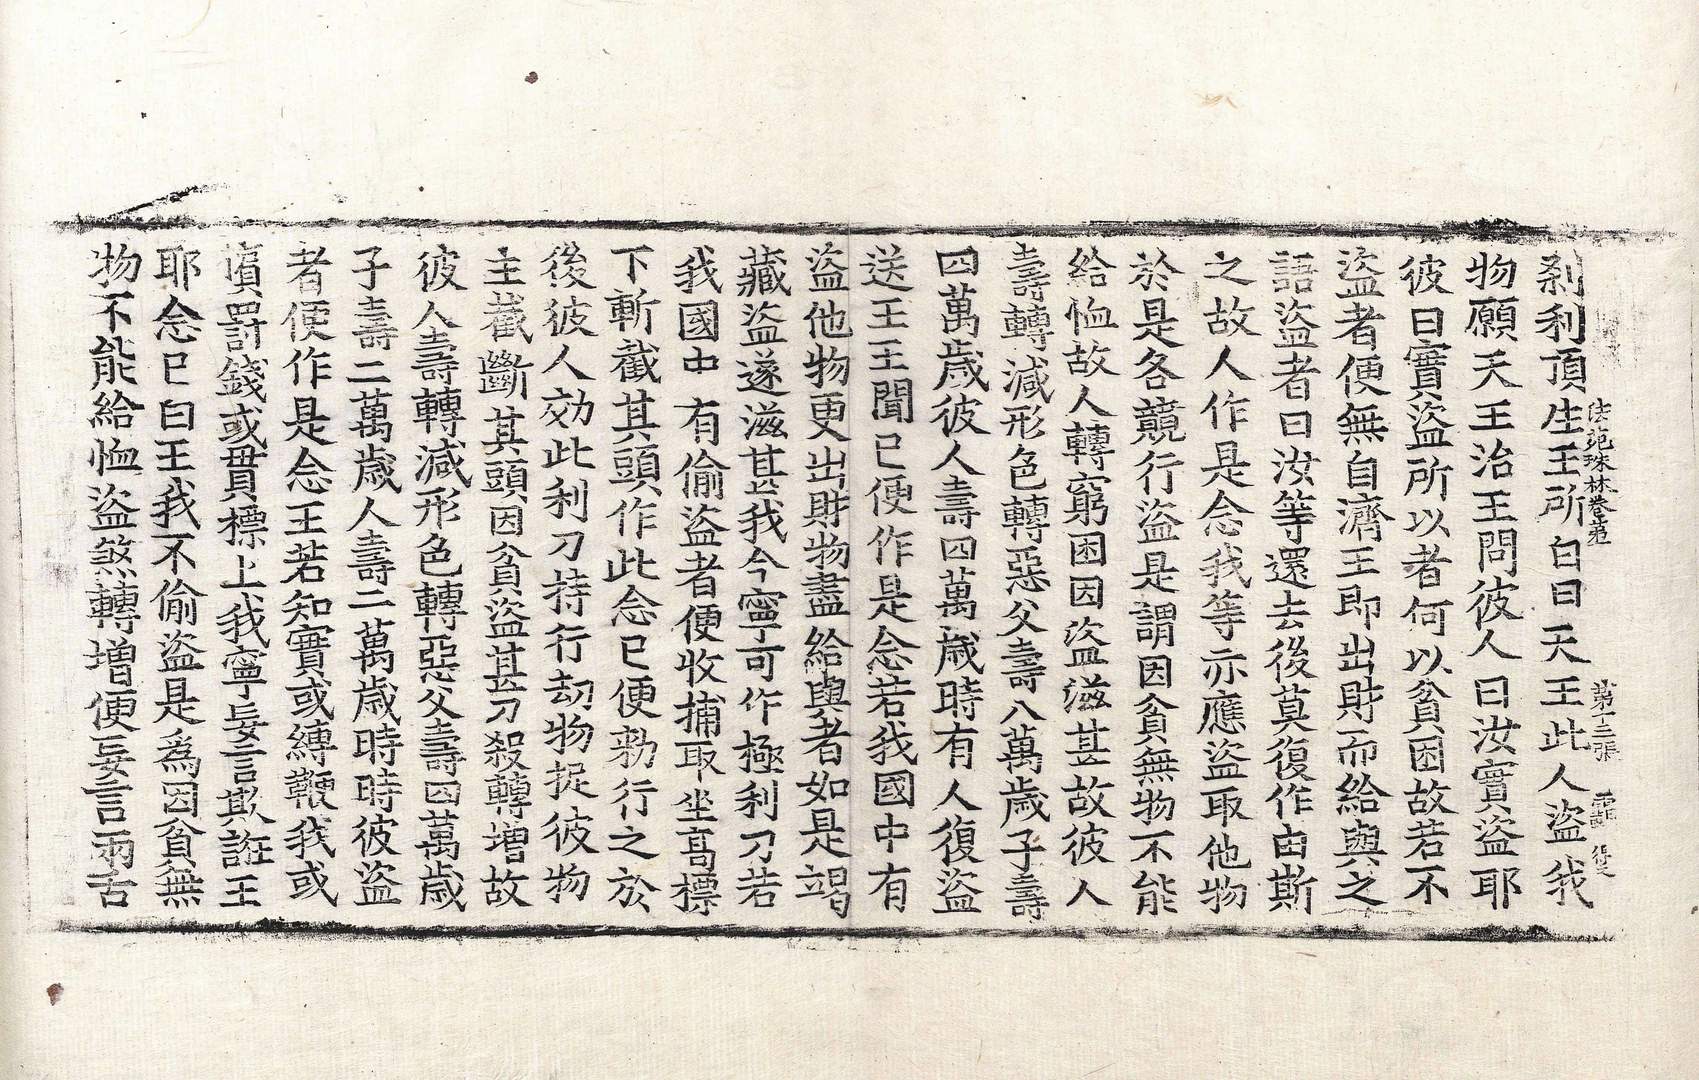 法苑珠林卷第一 第十三張
刹利頂生王所白曰天王此人盜我
物願天王治王問彼人曰汝實盜耶
彼曰實盜所以者何以貧困故若不
盜者便無自濟王即出財而給與之
語盜者曰汝等還去後莫復作由斯
之故人作是念我等亦應盜取他物
於是各競行盜是謂因貧無物不能
給恤故人轉窮困因盜滋甚故彼人
壽轉減形色轉惡父壽八萬歲子壽
四萬歲彼人壽四萬歲時有人復盜
送王王聞已便作是念若我國中有
盜他物更出財物盡給與者如是竭
藏盜遂滋甚我今寧可作極利刀若
我國中有偷盜者便收捕取坐高標
下斬截其頭作此念已便勑行之於
後彼人効此利刀持行劫物捉彼物
主截斷其頭因貧盜甚刀殺轉增故
彼人壽轉減形色轉惡父壽四萬歲
子壽二萬歲人壽二萬歲時時彼盜
者便作是念王若知實或縛鞭我或
擯罰錢或貫標上我寧妄言欺誑王
耶念已白王我不偷盜是爲因貧無
物不能給恤盜煞轉增便妄言兩舌